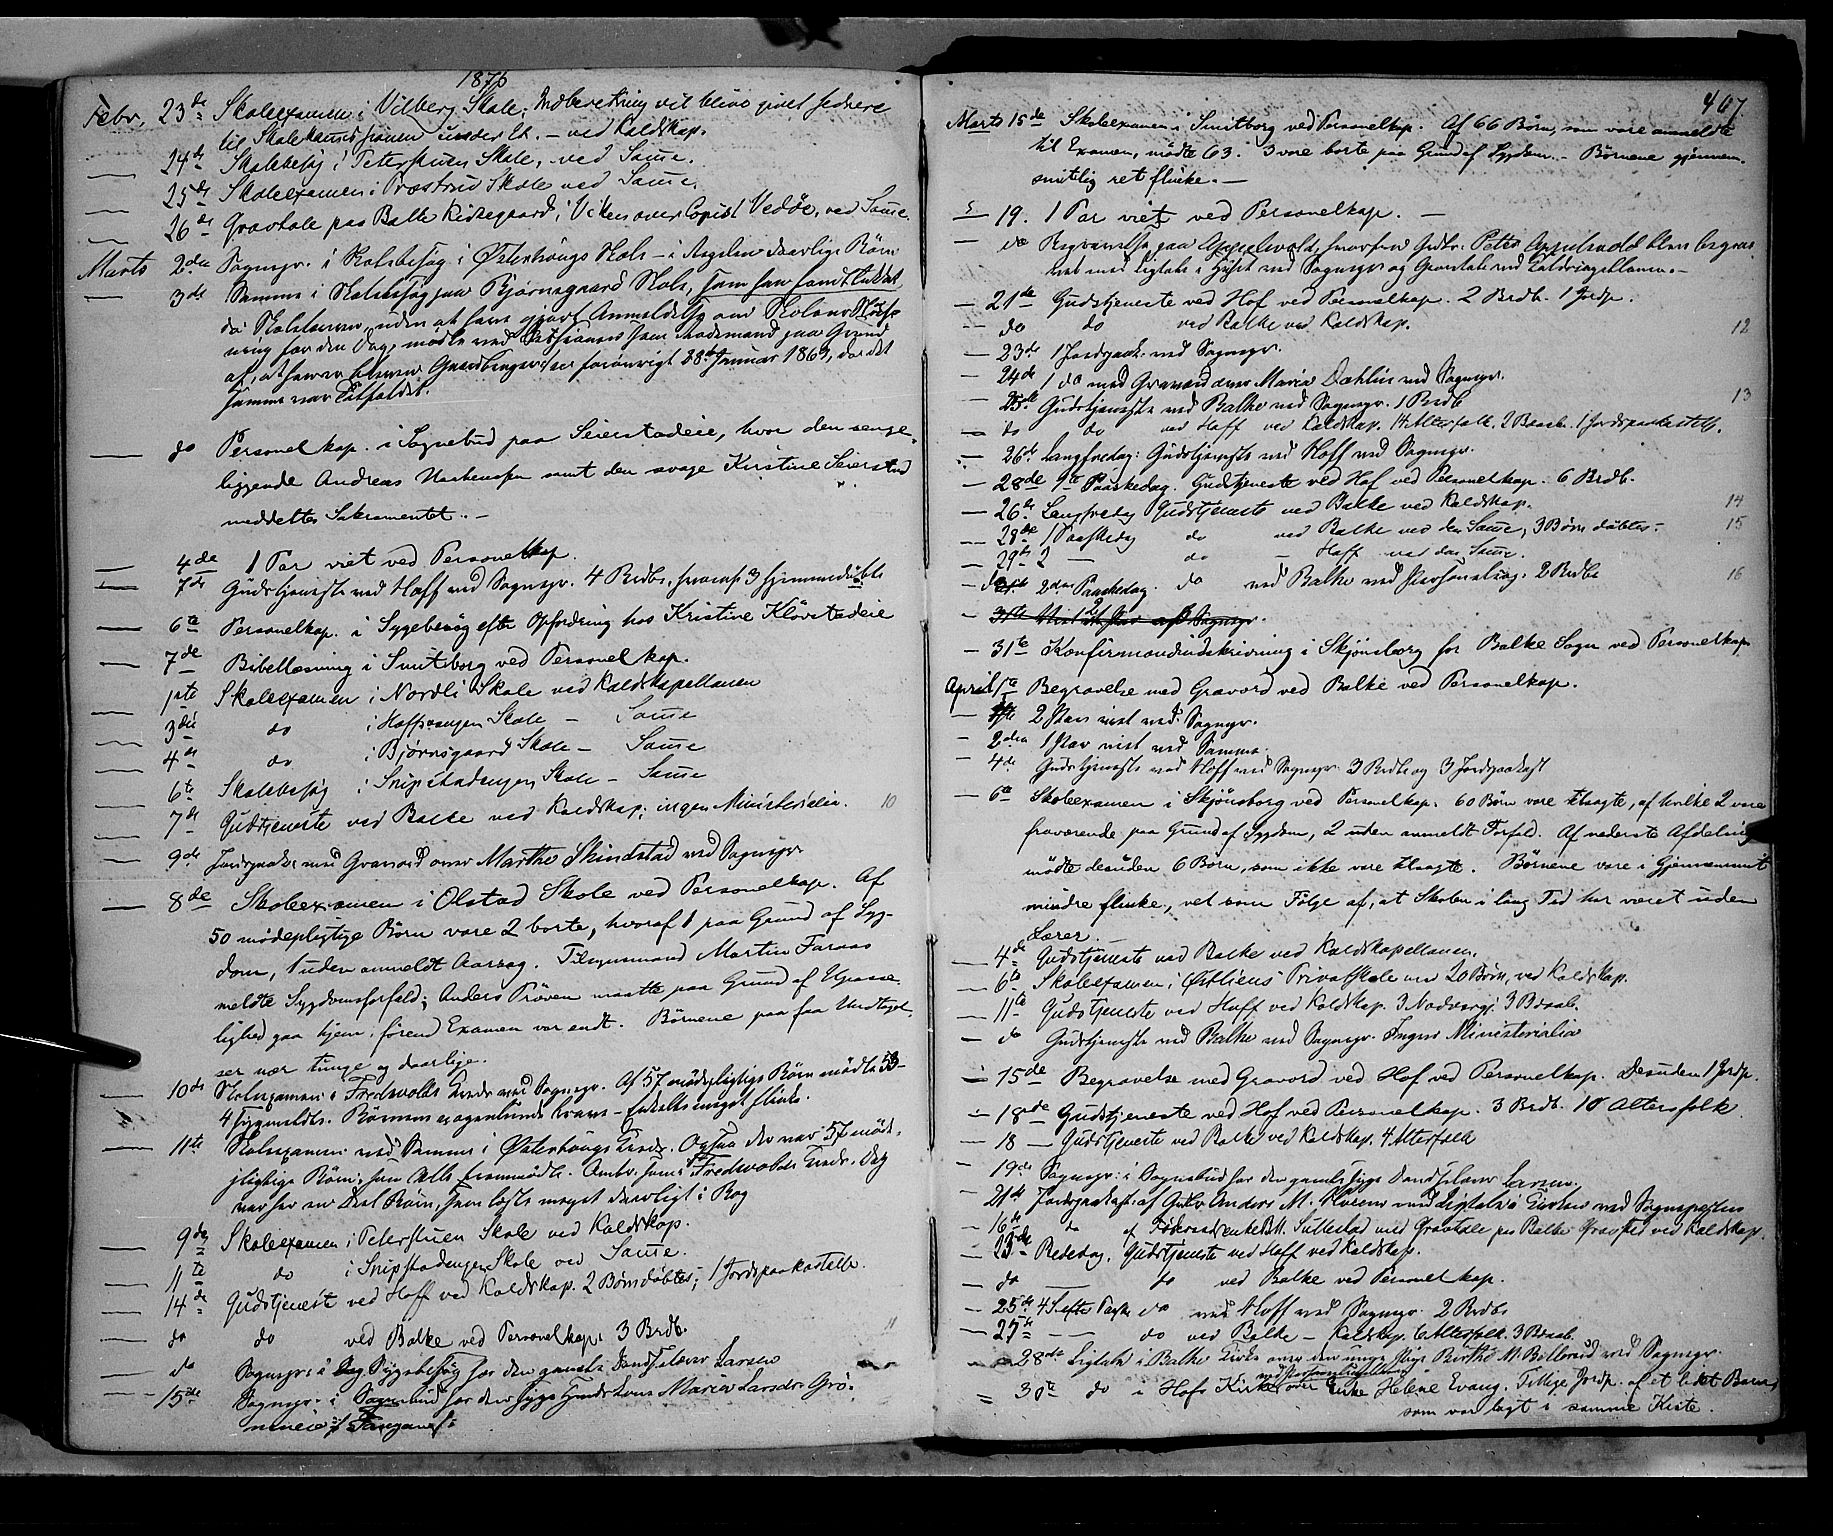 1875
Febr. 23de Skoleexamen i Vilberg Skole; Indberetning vil blive givet sednere
til Skolekommissionen under Et. – ved Kaldskap.
— 24de Skolebesøg i Peterstuen Skole, ved Same.
— 25de Skoleexamen i Præstrud Skole ved Same.
— 26de Gravtale paa Balke Kirkegaard, i Viken over Copist Vedøe, ved Same.
Marts 2den Sognepr. i Skolebesøg i Østerhougs Skole – i Regelen daarlige Børn
— 3de Samme i Skolebesøg paa Bjørnsgaard Skole, som han fandt lukket
da Skoleläreren, uden at have gjort Anmeldelse om Skolens
ning for den Dag, mødte ved som paa Grund
af, at 28de Januar 1863, da det
samme var Tilfældet.
— do Personelkap. i Sognebud paa Seierstadeie, hvor den senge-
liggende Andreas samt den svage Kristine Seierstad
meddeltes Sakramentet. –
— 4de 1 Par viet ved Personelkap.
— 7de Gudstjeneste ved Hoff ved Sognepr. 4 Brdb., hvoraf 3 hjemmedøbte
— 6te Personelkap. i Sygebesøg efter Opfordring hos Kristine Kløvstadeie
— 7de Bibellæsning i Smitborg ved Personelkap.
— 1ste Skoleexamen i Nordli Skole ved Kaldskapellanen
— 3die do i Hoffsvangen Skole – Same
— 4de do i Bjørnsgaard Skole – Same
— 6te Skolebesøg i Snipstadengen Skole – Same
— 7de Gudstjeneste ved Balke ved Kaldskap; ingen Ministerialia. 10
— 9de Jordpaak. med Gravord over Marthe Skindstad ved Sognepr.
— 8de Skoleexamen i Olstad Skole ved Personelkap. Af
50 mødepligtige Børn vare 2 borte, hvoraf 1 paa Grund af Syg-
dom, 1 uden anmeldt Aarsag. Tilsynsmand Martin Faraas
meldte Sygdomsforfald; Anders Prøven maatte paa Grund af Upasse-
lighed gaa hjem, førend Examen var endt. Børnene paa faa Undtagel-
ser nær tunge og daarlige.
— 10de Skoleexamen i Fredsvolds Kreds ved Sognepr. Af 57 mødepligtige Børn mødte 53 –
4 sygmeldte. Børnene i brave – Enkelte meget flinke.
— 11te Skoleexamen ved Samme i Østerhougs Kreds. Ogsaa der var 57 mødt,
pligtige Børn, som Alle fremmødte. som i Fredsvolds Kreds. Dog
var her en Deel Børn, som læste meget daarligt i Bog
— 9de Skoleexamen i Peterstuen Skole ved Kaldskap.
— 11te do i Snipstadengen Skole ved Same.
— 14de Gudstjeneste ved Hoff ved Kaldskap. 2 Børn døbtes; 1 Jordpaakastelse.
— do do ved Balke ved Personelkap; 3 Brdb. 11
— do Sognepr. i Sygebesøg hos den gamle Larsen
— 15de Sognepr. i Sognebud hos den syge Maria Larsdr. Grø-
neneie
407.
Marts 15de Skoleexamen i Smitborg ved Personelkap. Af 66 Børn, som vare anmeldte
til Examen, mødte 63. 3 vare borte paa Grund af Sygdom. – Børnene gjennem-
snitlig ret flinke. –
— 19. 1 Par viet ved Personelkap. –
— do Begravelse paa Appelvold, hvorfra Gdbr. Peter Appelvold blev begra-
vet med Ligtale i Huset ved Sognepr og Gravtale ved Kaldskapellanen. –
— 21de Gudstjeneste ved Hof ved Personelkap. 2 Brdb. 1 Jordp.
— do do ved Balke ved Kaldskap. 12
— 23de 1 Jordpaak. ved Sognepr.
— 24de 1 do med Gravord over Maria Dæhlin ved Sognepr.
— 25de Gudstjeneste ved Balke ved Sognepr. 1 Brdb 13
— do do ved Hoff ved Kaldskap. 14 Alterfolk. 2 Baab. 1 Jordpaakastelse.
— 26de Langfredag: Gudstjeneste ved Hoff ved Sognepr.
— 28de 1ste Paaskedag. Gudstjeneste ved Hof ved Personelkap. 6 Brdb.
— 26de Langfredag Gudstjeneste ved Balke ved Kaldskap. 14
— 28de 1 Paaskedag do ved Balke ved den Same; 3 Børn døbtes – 15
— 29de 2 — do – Hoff ved den Same.
— do 2den Paaskedag. do ved Balke ved Personelkap. 2 Brdb 16
— 31te Viet 2 Par af Sognepr.
— 31te Konfirmandudskrivning i Skjønsborg for Balke Sogn ved Personelkap
April 1ste Begravelse med Gravord ved Balke ved Personelkap.
— 2 Par viet ved Sognepr.
— 2den 1 Par viet ved Samme.
— 4de Gudstjeneste ved Hoff ved Sognepr 3 Brdb og 3 Jordpaakast
— 6te Skoleexamen i Skjønsborg ved Personelkap. 60 Børn vare tilsagte, af hvilke 2 vare
fraværende paa Grund af Sygdom, 2 uden anmeldt Forfald. Af nederste Afdeling
mødte desuden 6 Børn, som ikke vare tilsagte. Børnene vare i Gjennemsnit
mindre flinke, vel som Følge af, at Skolen i lang Tid har været uden
Lærer. –
— 4de Gudstjeneste ved Balke ved Kaldskapellanen.
— 6te Skoleexamen i Østliens Privatskole over 20 Børn, ved Kaldskap.
— 11te Gudstjeneste ved Hoff ved Kaldskap. 3 Nadverg; 3 Baab.
— do Gudstjeneste ved Balke ved Sognepr. Ingen Ministerialia
— 15de Begravelse med Gravord ved Hof ved Personelkap. Desuden 1 Jordp.
— 18de Gudstjeneste ved Hof ved Personelkap. 3 Brdb. 10 Altersfolk.
— 18 — Gudstjeneste ved Balke ved Kaldskap. 4 Alterfolk
— 19de Sognepr. i Sognebud hos den gamle syge Larsen.
— 21de Jordpaakast. af Gdbr Anders M. med Ligtale i Kirken ved Sognepresten
— 16de do af M. Sillestad med Gravtale paa Balke Gravsted ved Kaldskap.
— 23de Bededag. Gudstjeneste ved Hoff ved Kaldskap.
— do — do ved Balke ved Personelkap.
— 25de 4 S. efter Paaske do ved Hoff ved Sognepr. 2 Brdb
— 25de — do ved Balke – Kaldskap. 6 Alterfolk. 3 Baab.
— 28de Ligtale i Balke Kirke over den unge Pige Berthe M. Billerud ved Sognepr.
— 30te do i Hofs Kirke over Enke Helene Evang. Tillige Jordp. af et lidet Barn,
som var lagt i samme Kiste.